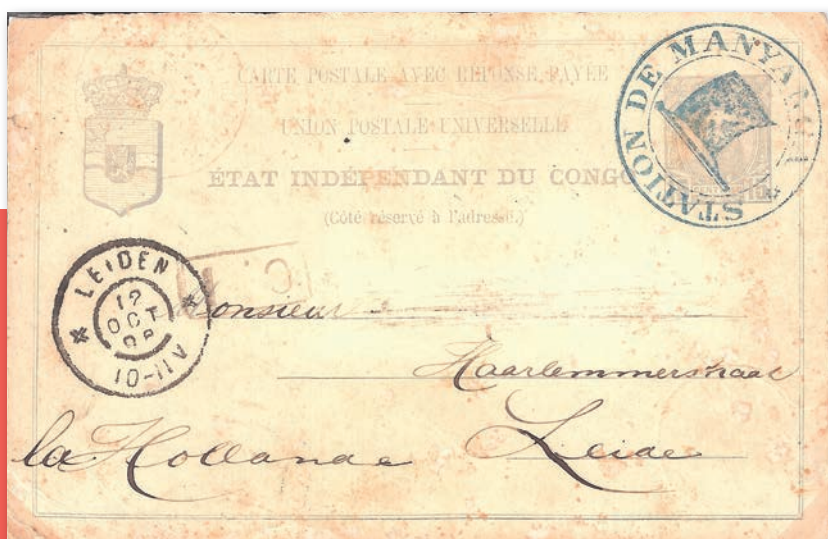 CARTE POSTALE AVEC RÉPONSE PAYÉE
UNION POSTALE UNIVERSELLE
ÉTAT INDÉPENDANT DU CONGO
(Côté réservé à l'adresse.)
STATION DE MANYANGA
10
LEIDEN
12
OCT
10-11V
Monsieur
Haarlemmerstraat
Leide
la Hollande